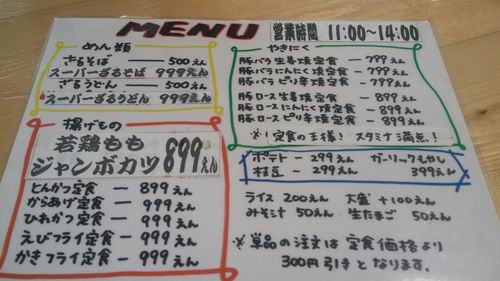 MENU
営業時間 11:00~14:00
めん類
ざるそば — 500えん
スーパーざるそば 999えん
ざるうどん — 500えん
スーパーざるうどん 999えん
揚げもの
若鶏もも
ジャンボカツ 899えん
とんかつ定食 — 899えん
からあげ定食 — 999えん
ひれかつ定食 — 999えん
えびフライ定食 — 999えん
かきフライ定食 — 999えん
やきにく
豚バラ生姜焼定食 — 799えん
豚バラにんにく焼定食 — 799えん
豚バラ ピリ辛焼定食 — 799えん
豚ロース生姜焼定食 — 899えん
豚ロースにんにく焼定食 — 899えん
豚ロースピリ辛焼定食 — 899えん
※!定食の王様! スタミナ満点!!
ポテト — 299えん ガーリックもやし
枝豆 — 299えん 399えん
ライス 200えん 大盛 +100えん
みそ汁 50えん 生たまご 50えん
※単品の注文は定食価格より
300円引きとなります。